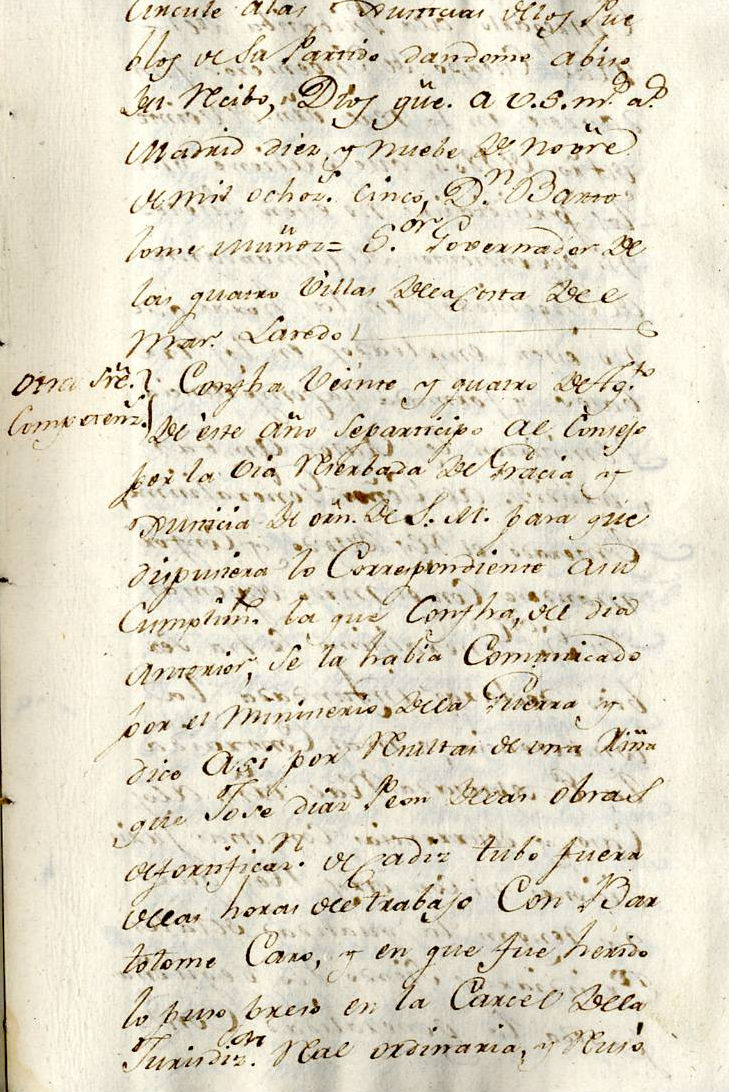 circule a las Justicias de los Pue
blos de Su Partido dandome abiso
del Recibo, Dios güe. a V.S. ms. as.
Madrid diez y nuebe de Novre.
de mil ochos. cinco, Dn. Barto
lome Muñoz = S.or Governador de
las quatro Villas de la Costa de el
Mar. Laredo
Otra Sre. Competenz.
Con fha Veinte y quatro de Ag.to
de este año se participo al Consejo
por la Via Reserbada de Gracia y
Justicia de orn. de S. M. para que
dispusiera lo Correspondiente a su
Cumplim. la que Con fha, del dia
Anterior, se la habia Comunicado
por el Ministerio de la Guerra y
dice Asi por Resultas de una Riña
que Jose diaz Peon de las obras
de fortificaz.n de Cadiz tubo fuera
de las horas de trabajo Con Bar
tolome Caro, y en que fue herido
lo puso preso en la Carcel de la
Jurisdiz.on Real ordinaria, y Rusó